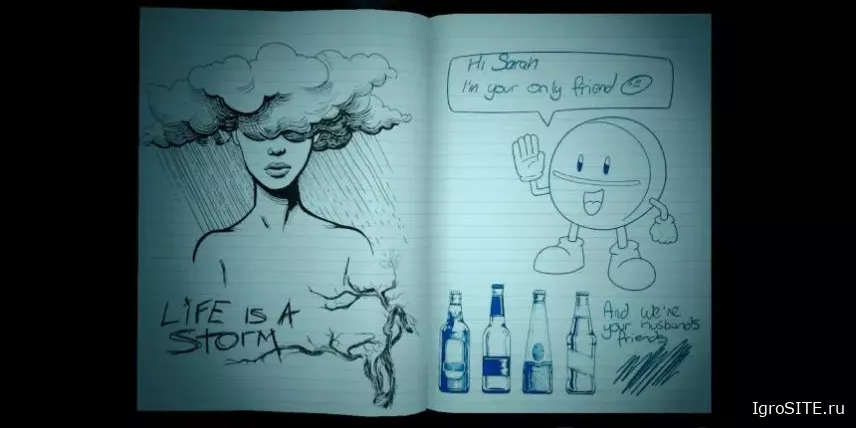 LIFE IS A
STORM
Hi Sarah
I'm your only friend
And we're
your husband's
friends
IgroSITE.ru